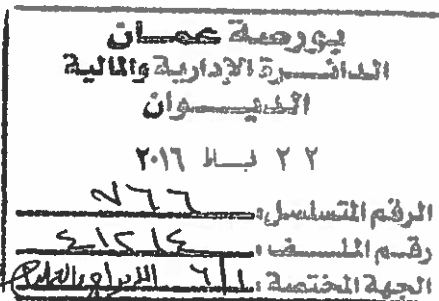 بورصة عمان
الدائرة الإدارية والمالية
الديوان
٢٢ شباط ٢٠١٦
الرقم المتسلسل: ٧٦٦
رقم الملف: ٤١٢١٤
الجهة المختصة: الإدراج